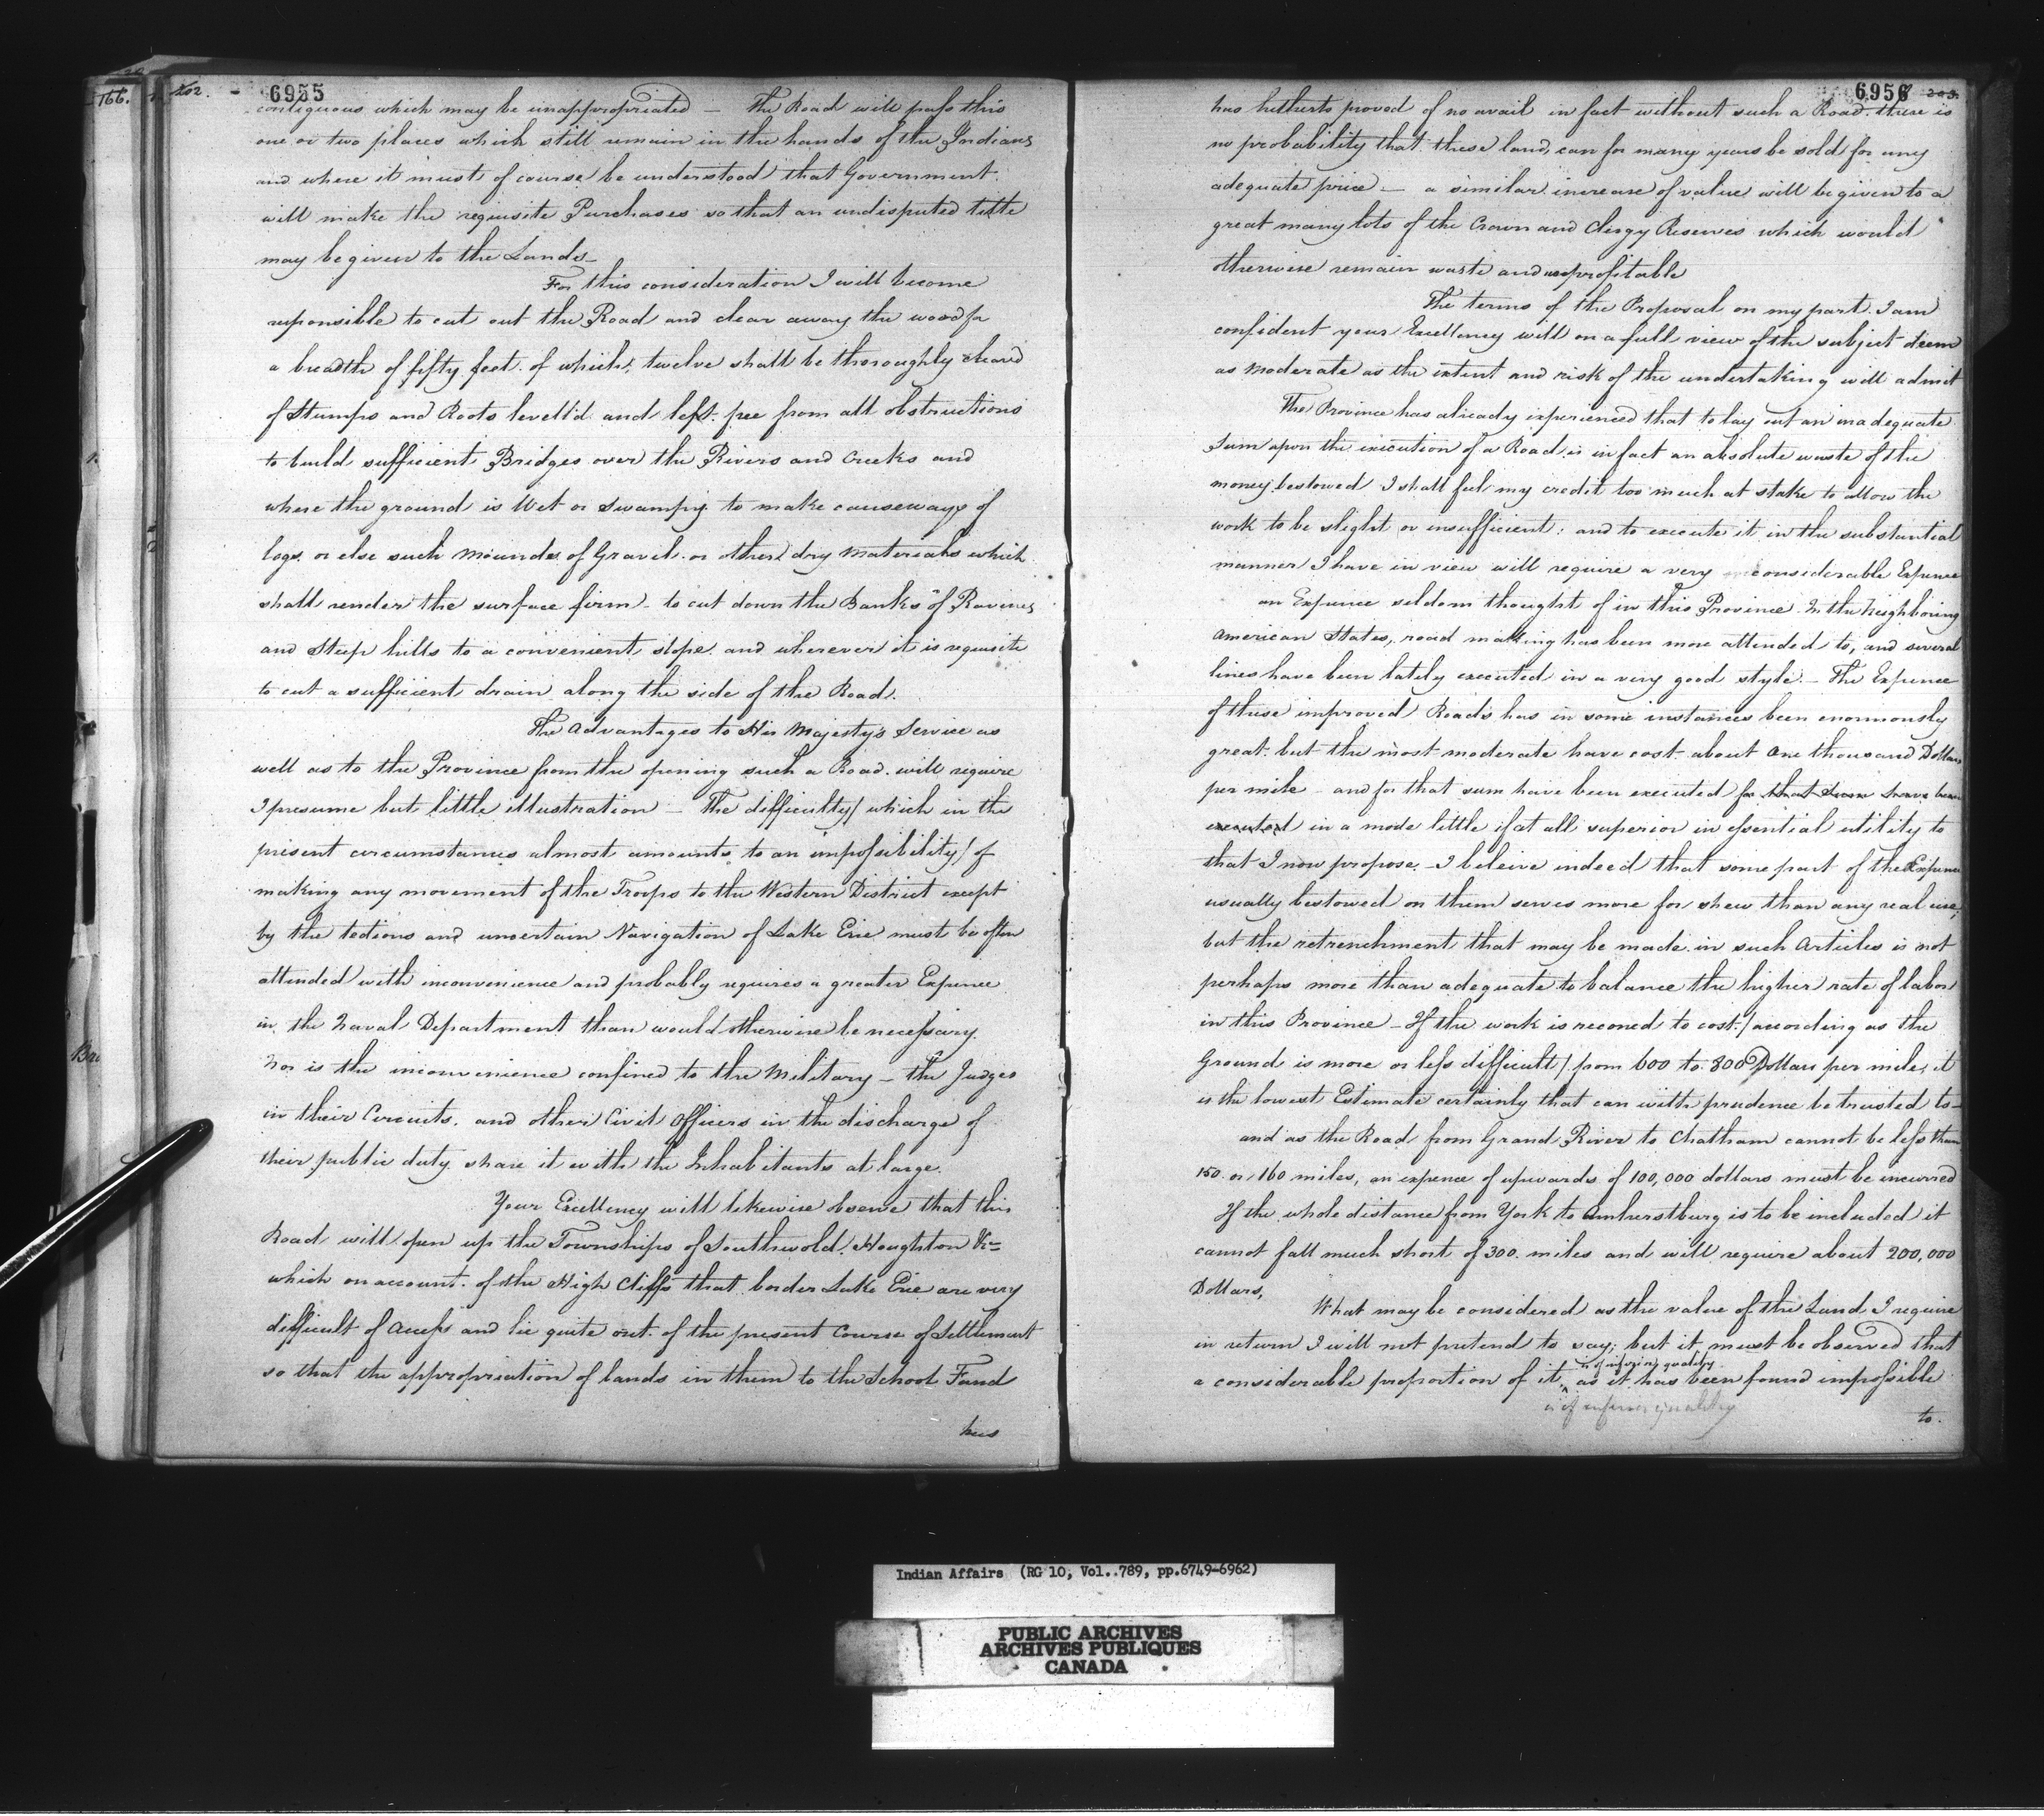 166.
202.
6955
contiguous which may be unappropriated — The Road will pass thro
one or two places which still remain in the hands of the Indians
and where it must of course be understood that Government
will make the requisite Purchases so that an undisputed title
may be given to the Lands —
For this consideration I will become
responsible to cut out the Road and clear away the wood for
a breadth of fifty feet. of which, twelve shall be thoroughly cleard
of Stumps and Roots levell'd and left free from all obstructions
to build sufficient Bridges over the Rivers and Creeks and
where the ground is Wet or Swampy to make causeways of
logs. or else such Mounds of Gravel. or other dry Materials which
shall render the surface firm – to cut down the Banks of Ravines
and Steep hills to a convenient slope. and wherever it is requisite
to cut a sufficient drain along the side of the Road.
The Advantages to His Majesty's Service as
well as to the Province from the opening such a Road. will require
I presume but little illustration — The difficulty / which in the
present circumstances almost amounts to an impossibility / of
making any movement of the Troops to the Western District except
by the tedious and uncertain Navigation of Lake Erie must be often
attended with inconvenience and probably requires a greater Expence
in the Naval Department than would otherwise be necessary.
Nor is the inconvenience confined to the Military — the Judges
in their Circuits. and other Civil Officers in the discharge of
their public duty share it with the Inhabitants at large.
Your Excellency will likewise observe that this
Road will open up the Townships of Southwold, Houghton &c
which on account. of the High Cliffs that border Lake Erie are very
difficult of Access and lie quite out of the present Course of Settlement
so that the appropriation of lands in them to the School Fund
has
6956
203.
has hitherto proved of no avail in fact without such a Road. there is
no probability that these lands can for many years be sold for any
adequate price — a similar increase of value will be given to a
great many lots of the Crown and Clergy Reserves which would
otherwise remain waste and unprofitable
The terms of the Proposal on my part. I am
confident your Excellency will on a full view of the subject deem
as Moderate as the extent and risk of the undertaking will admit
The Province has already experienced that to lay out an inadequate
Sum upon the execution of a Road is in fact an absolute waste of the
money bestowed I shall feel my credit too much at stake to allow the
work to be slight or insufficient; and to execute it in the substantial
manner I have in view will require a very considerable Expence
an Expence seldom thought of in this Province. In the Neighboring
American States, road making has been more attended to, and several
lines have been lately executed in a very good style — The Expence
of these improved Roads has in some instances been enormously
great. but the most moderate have cost about One thousand Dollars
per mile – and for that sum have been executed for that Sum have been
executed in a mode little if at all superior in essential utility to
that I now propose. I beleive indeed that some part of the Expence
usually bestowed on them serves more for shew than any real use,
but the retrenchment that may be made in such Articles is not
perhaps more than adequate to balance the higher rate of labor
in this Province – If the work is reconed to cost / according as the
Ground is more or less difficult / from 600 to 800 Dollars per mile, it
is the lowest Estimate certainly that can with prudence be trusted to —
and as the Road from Grand River to Chatham cannot be less than
150 or 160 miles, an expence of upwards of 100,000 dollars must be incurred
If the whole distance from York to Amherstburg is to be included it
cannot fall much short of 300. miles and will require about 200,000
Dollars,
What may be considered as the value of the Land I require
in return I will not pretend to say; but it must be observed that
is of inferior quality
a considerable proportion of it ^ as it has been found impossible
is of inferior quality
to.
Bri
Indian Affairs (RG 10, Vol..789, pp.6749-6962)
PUBLIC ARCHIVES
ARCHIVES PUBLIQUES
CANADA